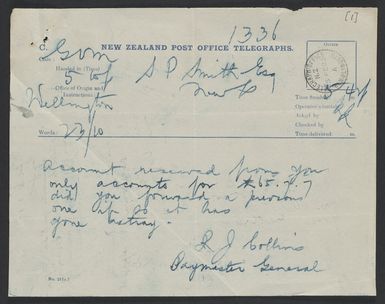 [1]
1336
C.
Govt
NEW ZEALAND POST OFFICE TELEGRAPHS.
Code
Handed in (Time)
S P Smith Esq
Office of Origin and
Instructions.
Wellington
Time Sent
Operator
Asked by
Checked by
Time delivered m.
Words: 23/10
Account received from you
only accounts for £65.7.7
did you forward a previous
one if so it has
gone astray.
R J Collins
Paymaster General